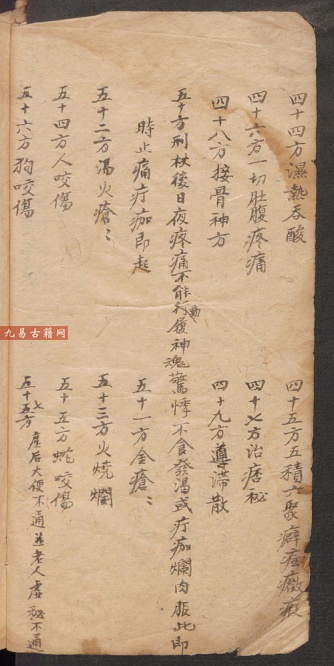 四十四方濕熱吞酸
四十五方五積六聚癖症癥瘕
四十六方一切肚腹疼痛
四十七方治痞秘
四十八方接骨神方
四十九方導滯散
五十方刑杖後日夜疼痛不能行動履神魂驚悸不食發渴或疔痂爛肉服此即
時止痛疔痂即起
五十一方金瘡
五十二方湯火瘡
五十三方火燒爛
五十四方人咬傷
五十五方蛇咬傷
五十六方狗咬傷
五十七方産后大便不通並老人虛秘不通
九易古籍网